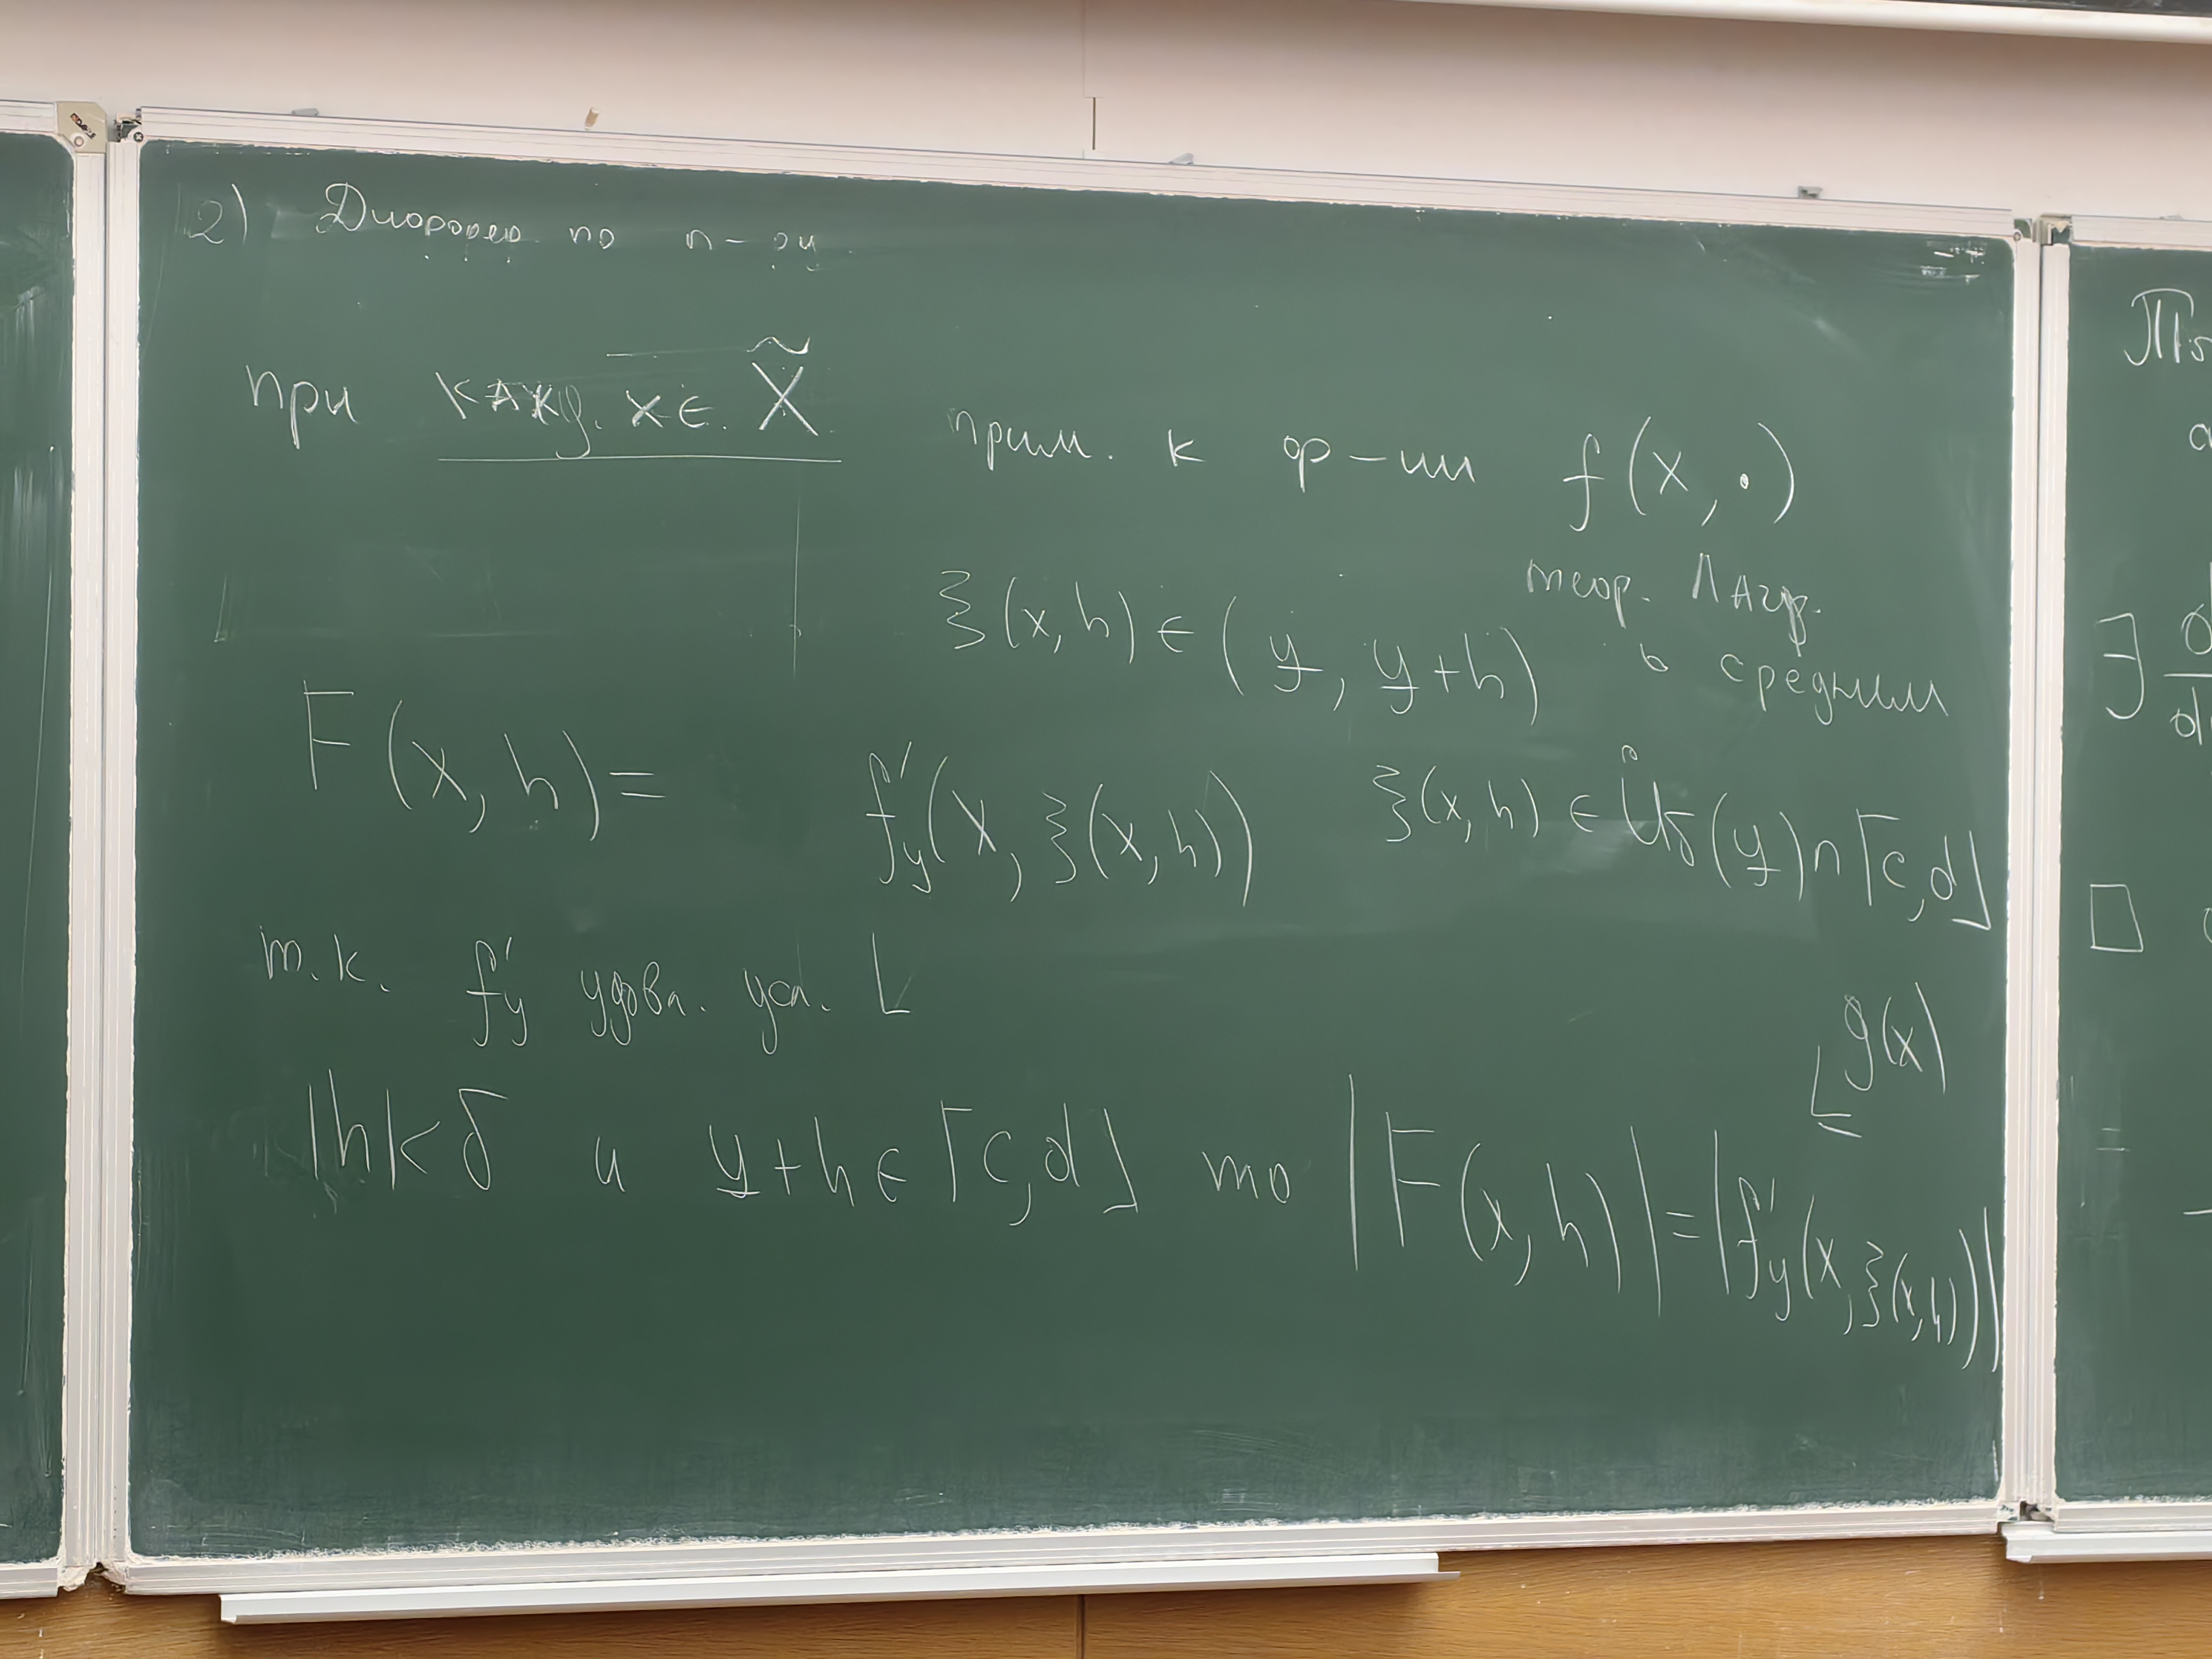 2) Диффер. по п-ру
при кажд. x ∈ X̃ прим. к ф-ии f(x, ·)
теор. Лагр.
о среднем
ξ(x, h) ∈ (y, y+h)
F(x, h) = f'y(x, ξ(x, h)) ξ(x, h) ∈ Ůδ(y) ∩ [c, d]
т.к. f'y удовл. усл. L
|h| < δ и y+h ∈ [c, d] то |F(x, h)| = |f'y(x, ξ(x, h))|
≤ g(x)
∃
□